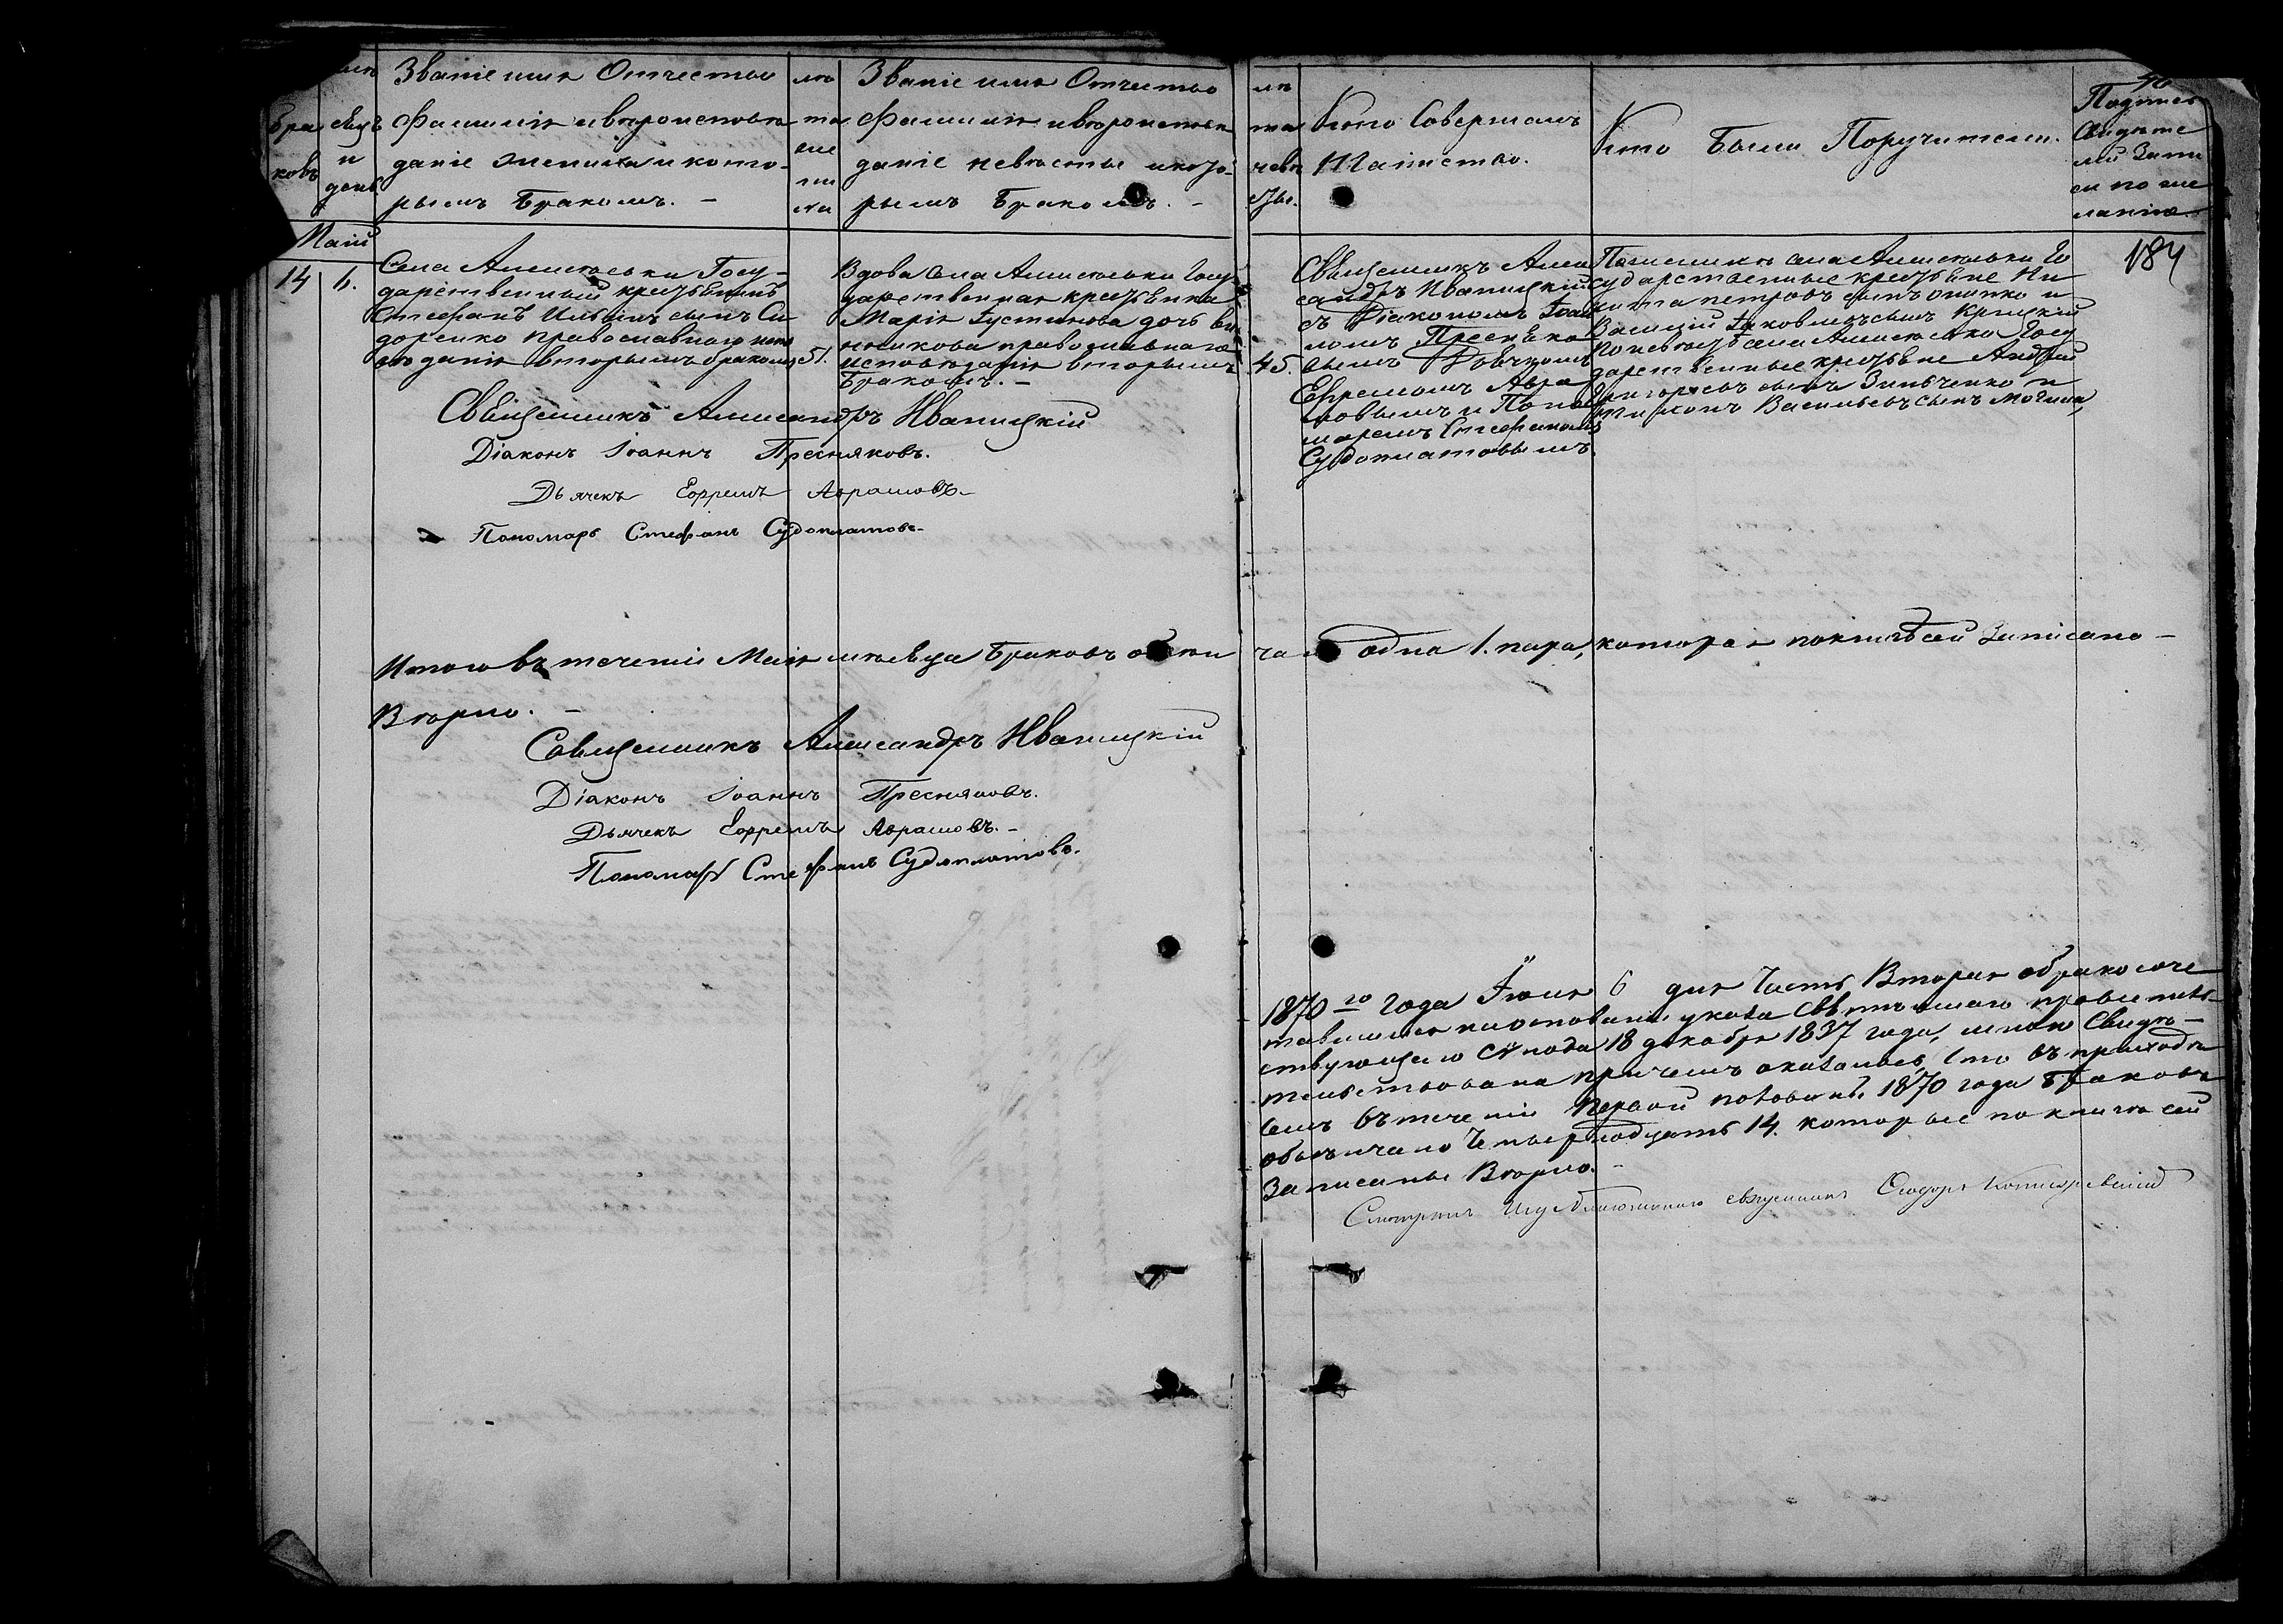 Званіе имя Отчество
фамилія и вѣроиспове
даніе жениха и кото-
рымъ Бракомъ. -
лѣ
та
же
ни
ха
Званіе имя Отчество
фамилія и вѣроиспове
даніе невѣсты и кото-
рымъ Бракомъ. -
лѣ
та
невѣ
сты.
Кто Совершалъ
Таинство.
Кто Были Поручители.
Подпись
Свидѣте
лей Запи
си по же
ланію.
бра
ковъ
и
день
Маій
184
14
6.
Села Государственный крестьянинъ
Стефанъ Ильинъ сынъ Си
доренко православнаго испо
вѣданія вторымъ бракомъ
51.
Вдова села Госу
дарственная крестьянка
Марія Іустинова дочь
православнаго
исповѣданія вторымъ
Бракомъ. -
45.
Священникъ Алек
сандръ Иваницкій
съ Діакономъ Іоан
номъ Пресняко
вымъ Дьячкомъ
Ефремомъ Авра
мовымъ и Поно
маремъ Стефаномъ
Судоплатовымъ.
По женихѣ села Го
сударственные крестьяне Ни
кита Петровъ сынъ и
Василій Іаковлевъ сынъ
По невѣстѣ села Госу
дарственные крестьяне Андрей
Григорьевъ сынъ Зинченко и
Васильевъ сынъ Могила,
Священникъ Александръ Иваницкій
Діаконъ Іоаннъ Пресняковъ.
Дьячекъ Ефремъ Аврамовъ.-
Пономарь Стефанъ Судоплатовъ.
Итого въ теченіи Маія мѣсяца Браковъ одна 1. пара, которая по книгѣ сей записана -
Вѣрно. -
Священникъ Александръ Иваницкій
Діаконъ Іоаннъ Пресняковъ.
Дьячекъ Ефремъ Аврамовъ. -
Пономарь Стефанъ Судоплатовъ.
1870-го года Іюня 6 дня Часть Вторая о бракосоче
тавшихся на основаніи указа Святѣйшаго правитель-
ствующаго Сѵнода 18 декабря 1837 года, мною Свидѣ-
тельствована причемъ оказалось, что въ приходѣ
семъ въ теченіи Первой половины 1870 года Браковъ
обвѣнчано Четырнадцать 14. которые по книгѣ сей
Записаны Вѣрно. -
священникъ Ѳеодоръ